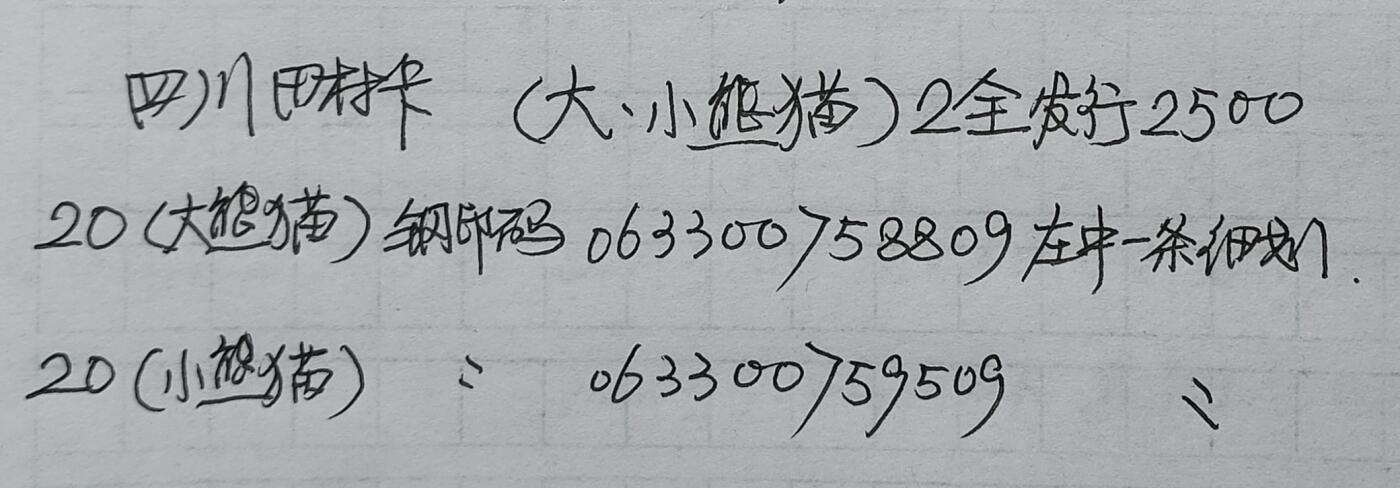 四川田村卡 (大、小熊猫)2全发行2500
20(大熊猫)钢印码 063300758809左中一条细划.
20(小熊猫) 〃 063300759509 〃